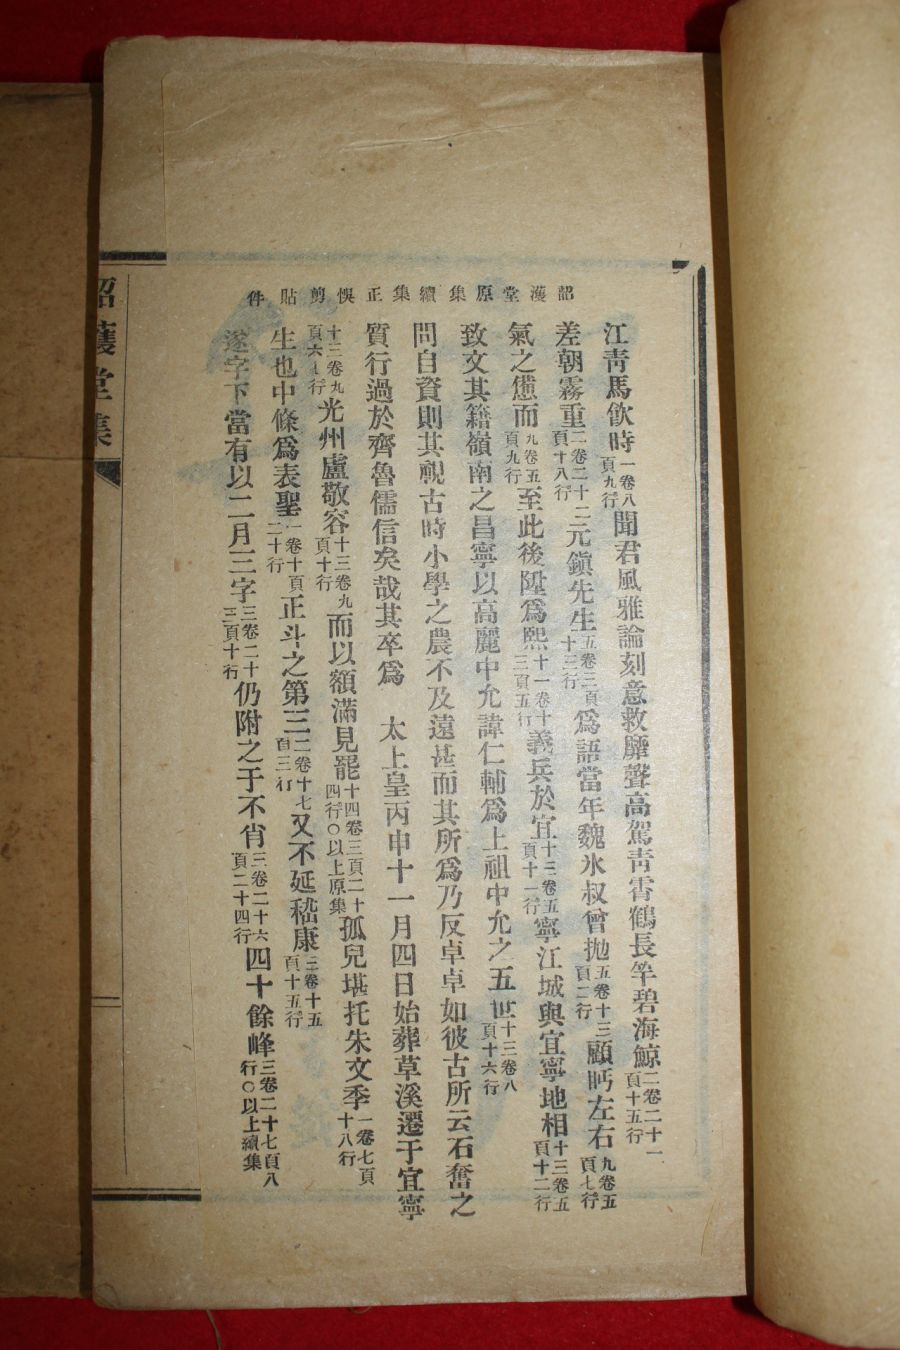 韶濩堂原集續集正悞剪貼件
江靑馬飮時一卷八頁九行聞君風雅論刻意救靡聲高駕靑霄鶴長竿碧海鯨二卷二十一頁十五行
差朝霧重二卷二十二頁十八行元鎭先生五卷三頁十三行爲語當年魏氷叔曾抛五卷十三頁二行顧眄左右九卷五頁七行
氣之憊而九卷五頁九行至此後陞爲熙十一卷十三頁五行義兵於宜十三卷五頁十一行寧江城與宜寧地相十三卷五頁十二行
致文其籍嶺南之昌寧以高麗中允諱仁輔爲上祖中允之五世十三卷八頁十六行
問自資則其覩古時小學之農不及遠甚而其所爲乃反卓卓如彼古所云石奮之
質行過於齊魯儒信矣哉其卒爲 太上皇丙申十一月四日始葬草溪遷于宜寧
十三卷九頁六行光州盧敬容十三卷九頁十行而以額滿見罷十四卷三頁二十四行○以上原集孤兒堪托朱文季一卷七頁十八行
生也中條爲表聖一卷十頁二十行正斗之第三二卷十七頁三行又不延嵇康三卷十五頁十五行
遂字下當有以二月三字三卷二十三頁十行仍附之于不肖三卷二十六頁二十四行四十餘峰三卷二十七頁八行○以上續集
韶濩堂集